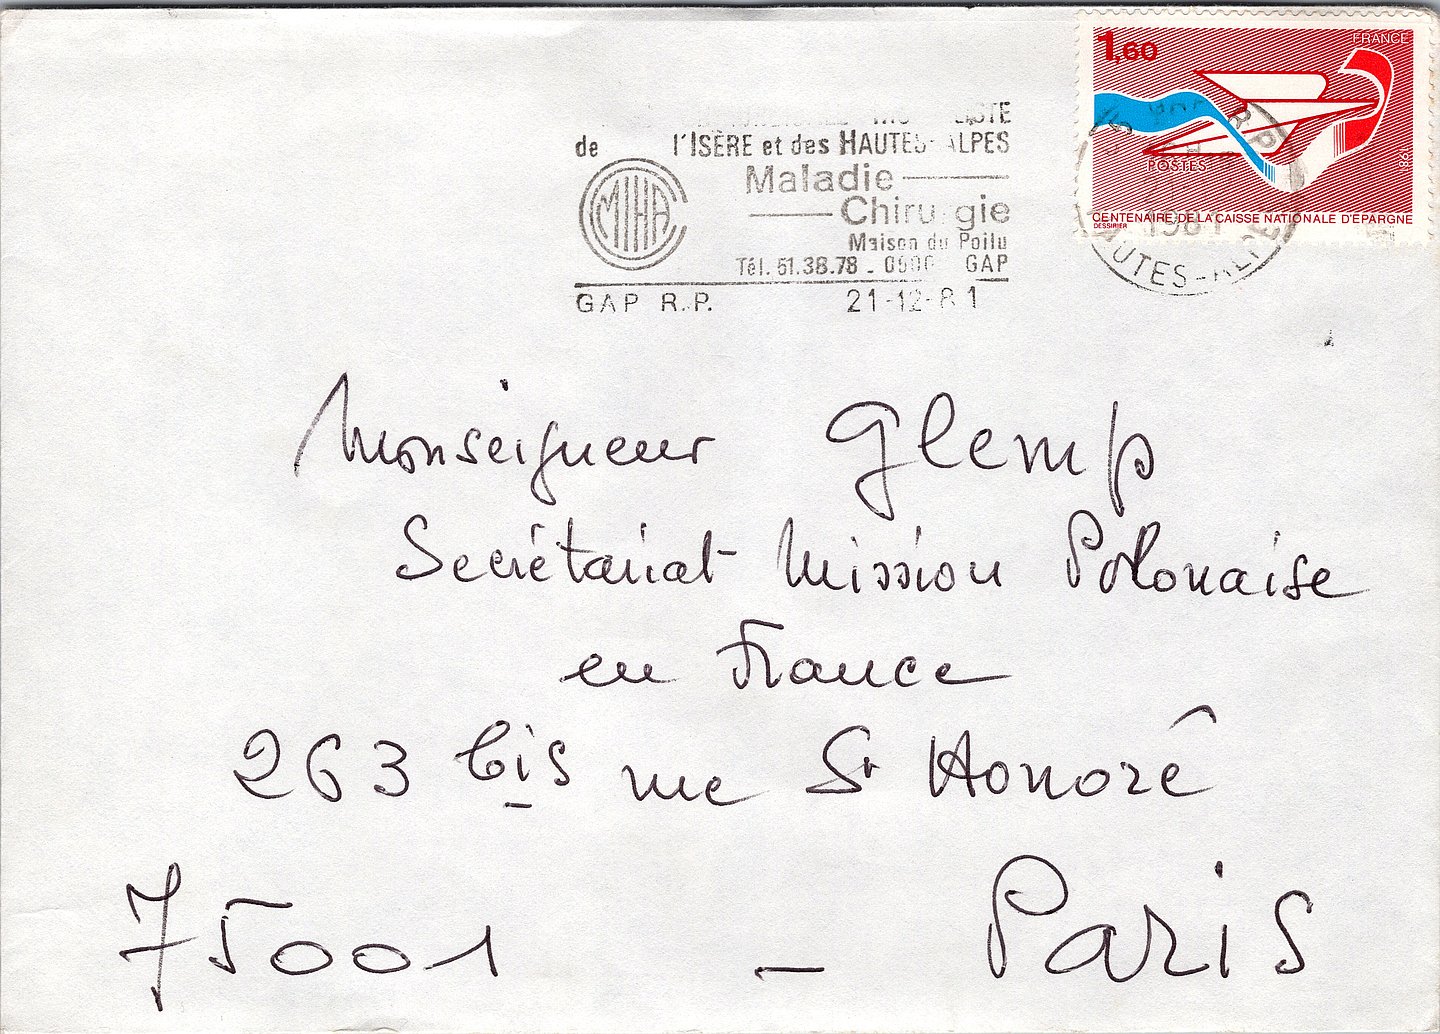 1,60
FRANCE
POSTES
1981
CENTENAIRE DE LA CAISSE NATIONALE D'ÉPARGNE
DESSIRIER
de l'ISÈRE et des HAUTES-ALPES
MIHA
Maladie
Chirurgie
Maison du Poilu
Tél. 51.38.78 - GAP
GAP R.P. 21-12-81
HAUTES-ALPES
Monseigneur Glemp
Secrétariat Mission Polonaise
en France
263 bis rue St Honoré
75001 - Paris